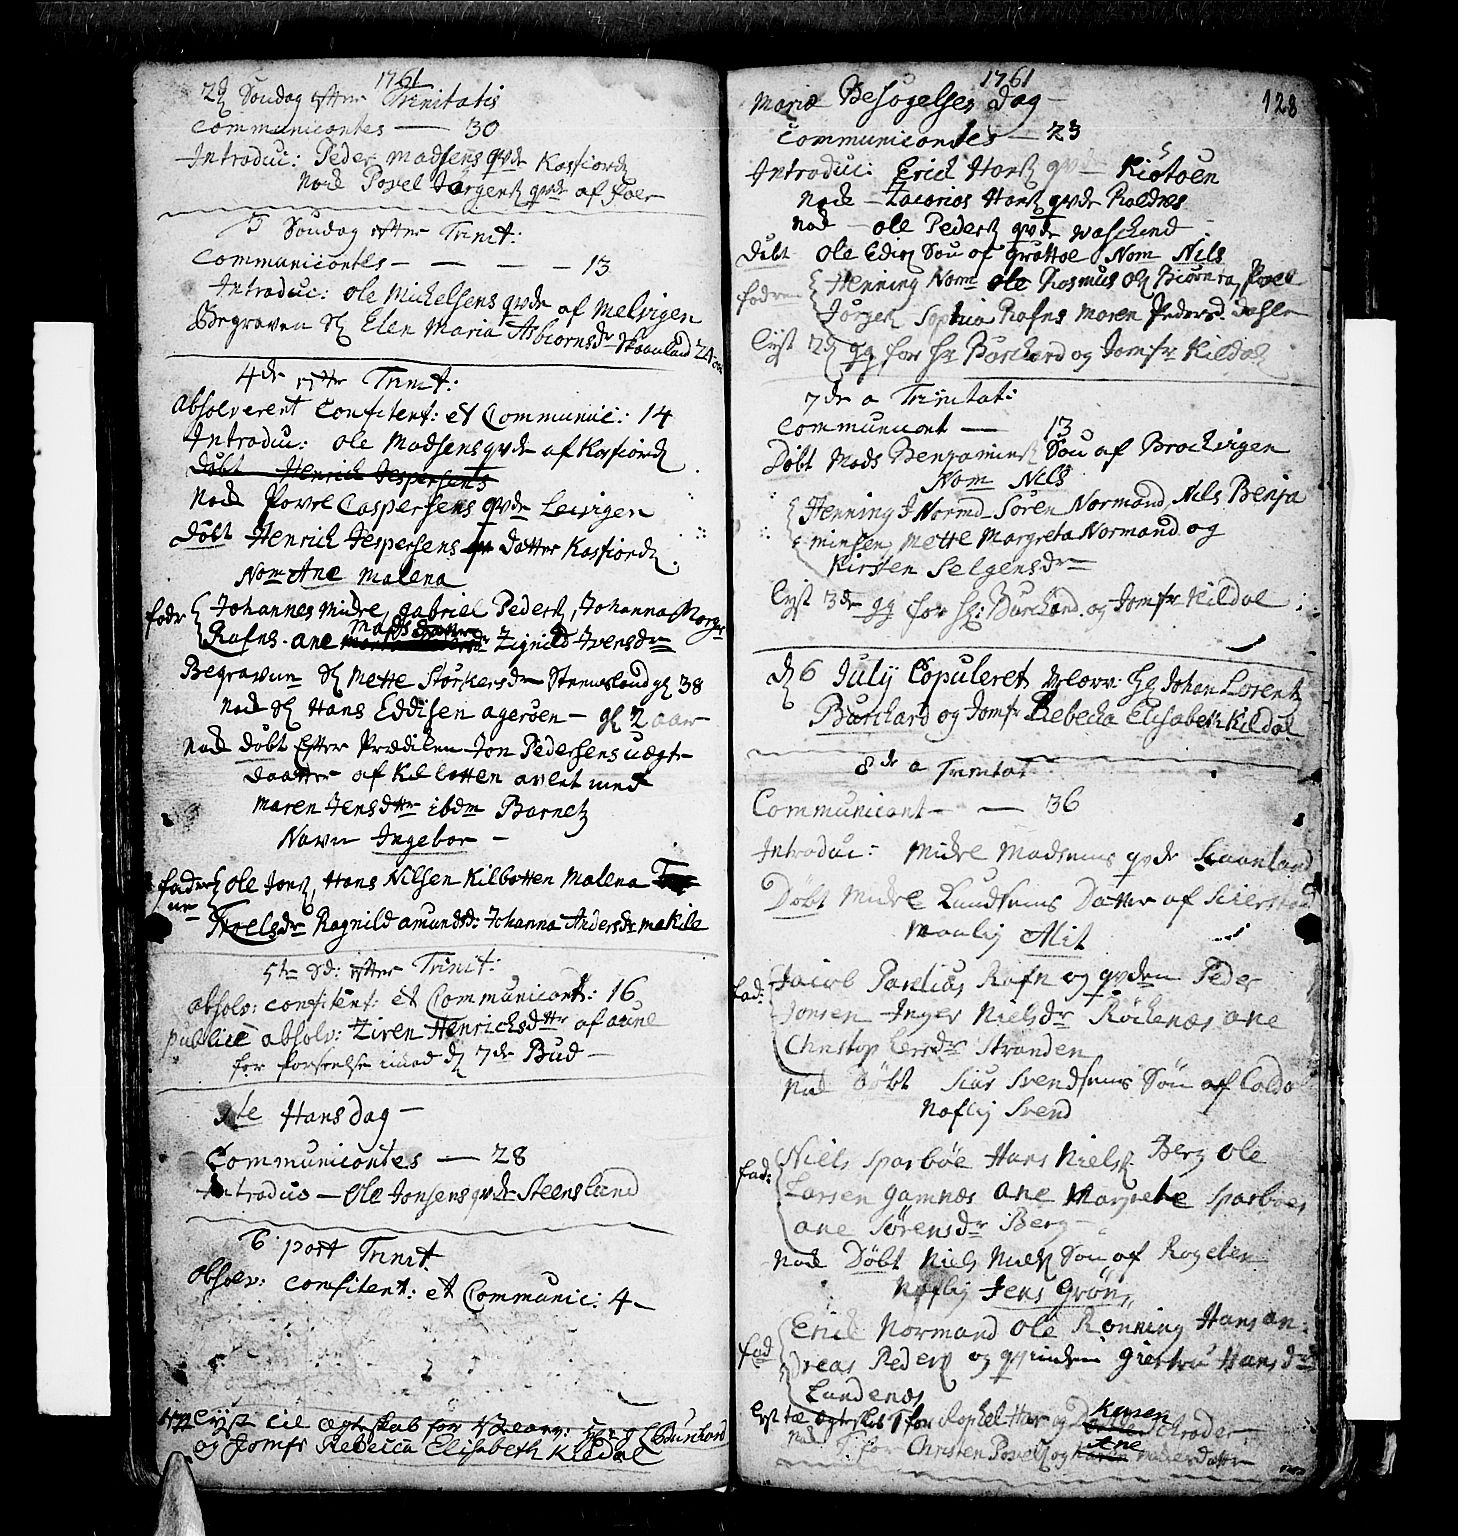 1761
2d Søndag efter Trinitatis
Communicantes — 30
Introduc: Peder Madsens qvde Kasfiord
Nock Povel Jørgens qvde af Foer
3 Søndag efter Trinit:
Communicantes — — — — 13
Introduc: Ole Michelsens qvde af Melvigen
Begraven Sl Elen Maria Asbiornsdr Skaanland 24
4de efter Trinit:
Absolverent Confitent: et Communic: 14
Introduc: Ole Madsens qvde af Kasfiord
Døbt Henrich Jespersens
Nock Povel Caspersens qvde Leivigen
Døbt Henrich Jespersens Datter Kasfiord
Nom Ane Malena
fadr Johannes Mickel, Gabriel Peders, Johanna Margr
Rafns. ane Madsdatter Zignild Iversdr
Begraven Sl Mette Størkersdr Steensland gl 38
Nock Sl Hans Eddisen agerøen — gl 2 aar
Nock døbt Efter Prædiken Jon Pedersens uægte
Daatter af Kilbotten avlet med
Maren Jensdttr ibdm Barnets
Navn Ingebor —
fadre Ole Jons, Hans Nilsen Kilbotten Malena
ne Troelsdr Ragnild amundsd: Johanna Andersdr Makile
5te Sd: efter Trinit:
absolv: confitent: et Communicant: 16
publicè absolv: Ziren Henrichsdttr af aune
for forseelse imod d 7de Bud —
Ste Hansdag —
Communicantes — 28
Introduc — Ole Jonsens qvde Steensland
6 post Trinit
absolv: confitent: et Communic: 4 —
Lyst til ægteskab for Velærv: Hr Burchard
og Jomfr Rebecca Elisabeth Kildal
1761
128
Mariæ Besøgelses Dag —
Communicantes — 23
Introduc: Erich Hans qv — Kiøtøen
Nock — Zacarias Hans qvde Roldnes
Nock — Ole Peders qvde Vaskind
Døbt Ole Edis Søn af Grøttøe Nom Nils
fadrene Henning Norm Ole Rasmus Ols Biørnra, Povel
Jørgens Sophia Rafns Maren Pedersd. Dahle
Lyst 2d gg for Hr Burchard og Jomfr Kildal
7de a Trinitat:
Communicant — 13
Døbt Mads Benjamins Søn af Brochvigen
Nom Nils
Henning J Normd Søren Normand Nils Benja
minsen Mette Margreta Normand og
Kirsten Helgensdr
Lyst 3de gg for Hr: Burchard og Jomfr Kildal
d 6 July Copuleret Velærv: Hr Johan Lorentz
Burchard og Jomfr Rebecka Elisabeth Kildal
8de a Trinitat
Communicant — — 36
Introduc: Mickel Madsens qvde Skaanland
Døbt Mickel Lundsens Datter af
Naavnlig Alit
fad: Jacob Parelius Rafn og qvden Peder
Jonsen Inger Nielsdr Røckenæs ane
Christophersdr Stranden
Nock Døbt Siur Svendsens Søn af Coldal
Nafnlig Svend
fad: Niels Sparbøe Hans Niels Berg Ole
Larsen Gamnæs ane Margrete Sparboes
ane Sørensdr Berg —
Nock Døbt Niels Niels Søn af Rogelen
Nafnlig Jens Grøn
fad Erick Normand Ole Rønning Hans an-
dreas Peders og qvinden Giertru Hansdr
Lundenæs
Lyst til ægteskab 1 for Raphel Hans og Karen Schrøder
Nock 1 for Christen Povels og Ane